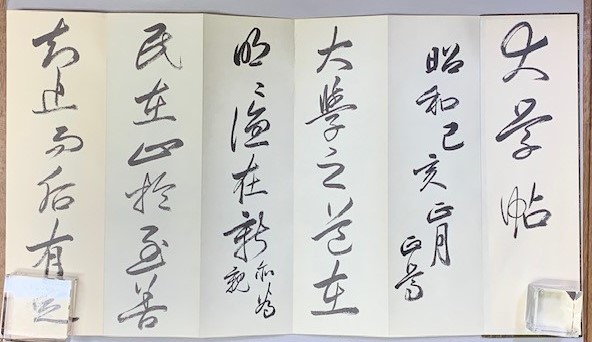 大学帖
昭和己亥正月
正篤
大學之道在
明々德在新
為親
民在止於至善
知止而后有定